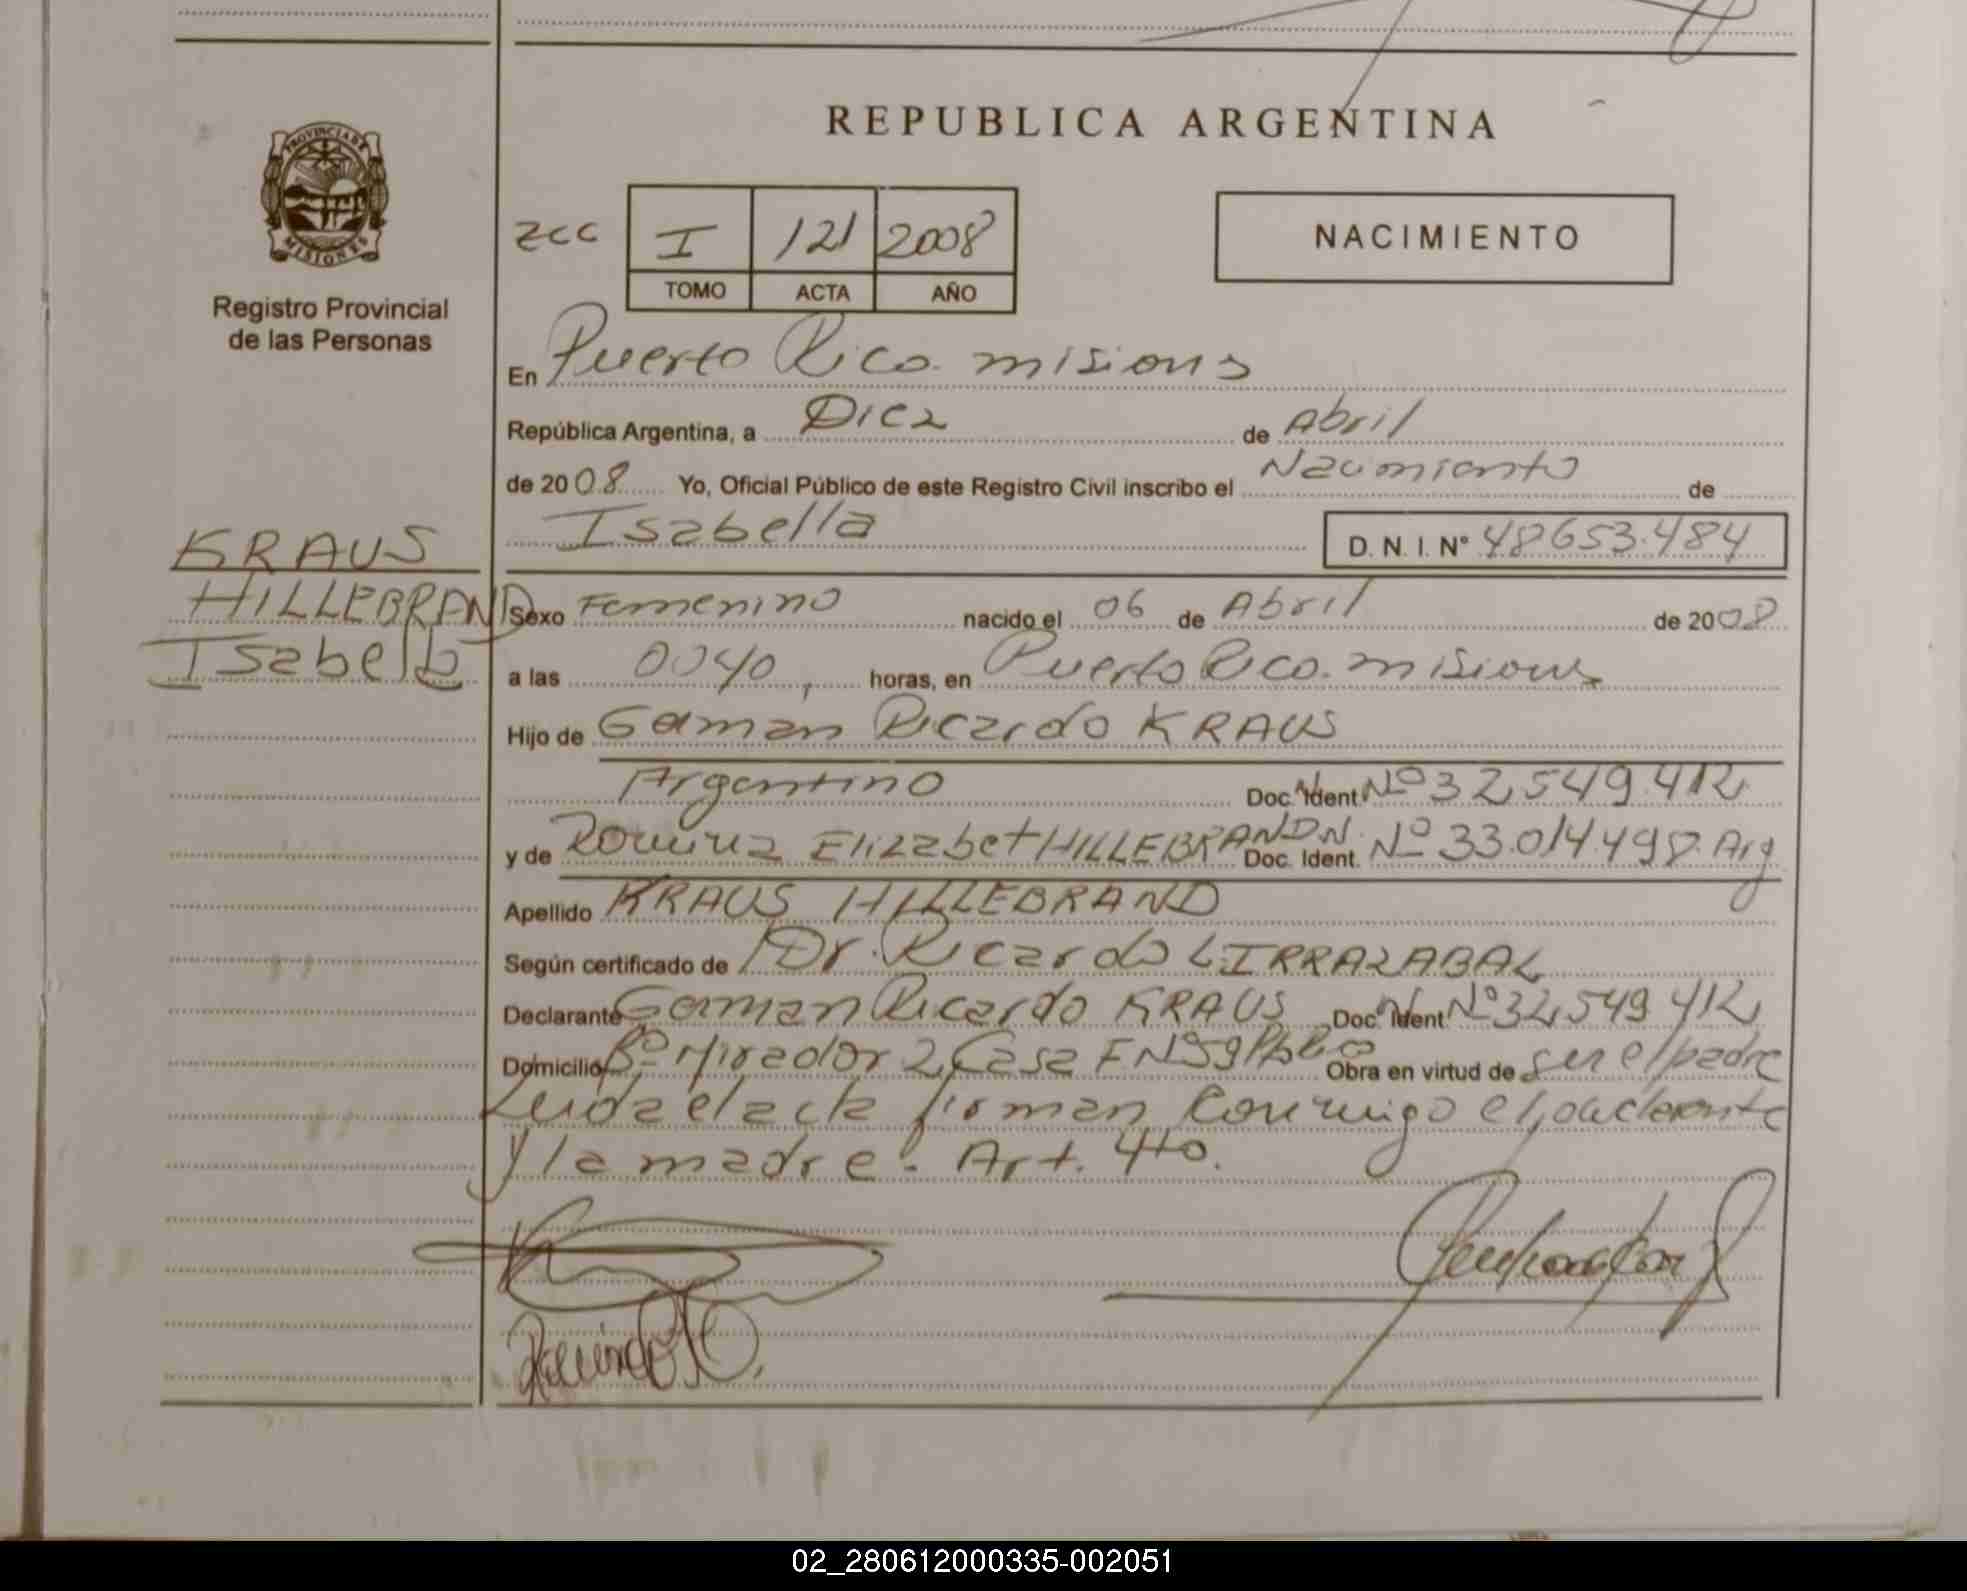 REPUBLICA ARGENTINA
PROVINCIA DE
MISIONES
Registro Provincial
de las Personas
ZCC
I 121 2008
TOMO ACTA AÑO
NACIMIENTO
En Puerto Rico. misiones
República Argentina, a Diez de Abril
de 2008 Yo, Oficial Público de este Registro Civil inscribo el Nacimiento de
Isabella D. N. I. Nº 48653.484
KRAUS
HILLEBRAND
Isabella
Sexo Femenino nacido el 06 de Abril de 2008
a las 0040, horas, en Puerto Rico. misiones
Hijo de German Ricardo KRAUS
Argentino Doc. Ident. Nº 32,549.412
y de Romina Elizabet HILLEBRAND Doc. Ident. D.N. Nº 33.014498. Arg
Apellido KRAUS HILLEBRAND
Según certificado de Dr. Ricardo L. IRRAZABAL
Declarante German Ricardo KRAUS Doc. Ident. Nº 32,549.412
Domicilio Bº Mirador 2, Casa F. Nº 59 Pto Rico Obra en virtud de ser el padre
Leida el acta firman conmigo el declarante
y la madre. Art. 4to.
02_280612000335-002051